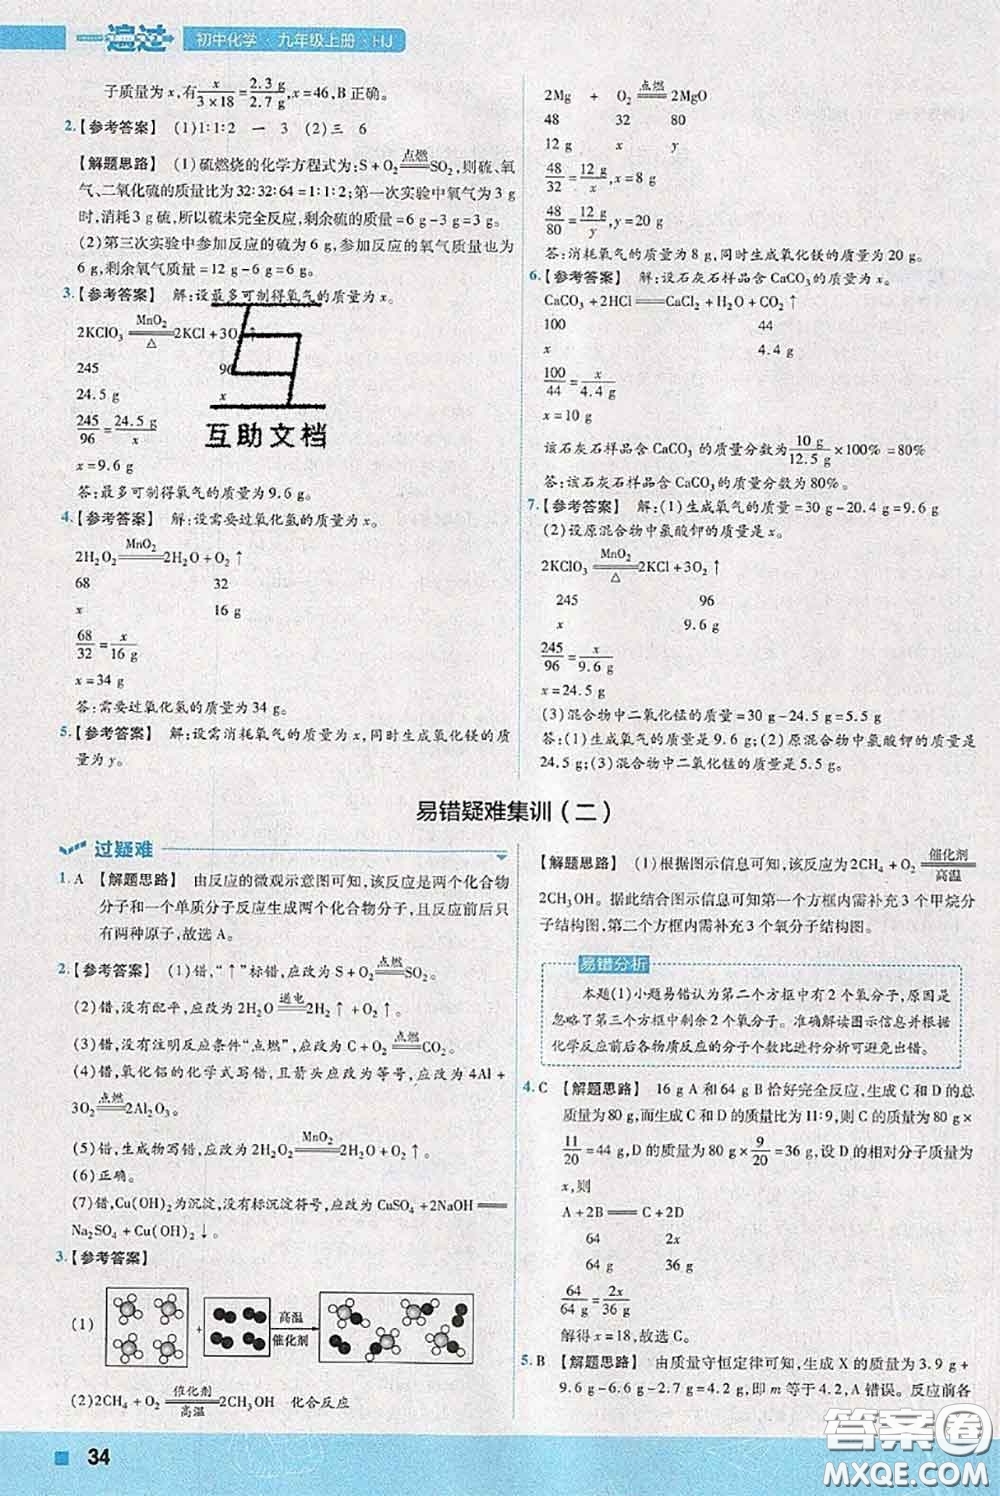 一遍过 初中化学·九年级上册·HJ
子质量为x,有x/(3×18)=2.3 g/2.7 g,x=46,B正确。
2.【参考答案】 (1)1∶1∶2 一 3 (2)三 6
【解题思路】 (1)硫燃烧的化学方程式为:S+O₂=点燃=SO₂,则硫、氧
气、二氧化硫的质量比为32∶32∶64=1∶1∶2;第一次实验中氧气为3 g
时,消耗3 g硫,所以硫未完全反应,剩余硫的质量=6 g-3 g=3 g。
(2)第三次实验中参加反应的硫为6 g,参加反应的氧气质量也为
6 g,剩余氧气质量=12 g-6 g=6 g。
3.【参考答案】 解:设最多可制得氧气的质量为x。
2KClO₃=MnO₂/△=2KCl+3O₂↑
245 96
24.5 g x
245/96=24.5 g/x
x=9.6 g
答:最多可制得氧气的质量为9.6 g。
4.【参考答案】 解:设需要过氧化氢的质量为x。
2H₂O₂=MnO₂=2H₂O+O₂↑
68 32
x 16 g
68/32=x/16 g
x=34 g
答:需要过氧化氢的质量为34 g。
5.【参考答案】 解:设需消耗氧气的质量为x,同时生成氧化镁的质量
为y。
2Mg + O₂=点燃=2MgO
48 32 80
12 g x y
48/32=12 g/x,x=8 g
48/80=12 g/y,y=20 g
答:消耗氧气的质量为8 g,同时生成氧化镁的质量为20 g。
6.【参考答案】 解:设石灰石样品含CaCO₃的质量为x。
CaCO₃+2HCl=CaCl₂+H₂O+CO₂↑
100 44
x 4.4 g
100/44=x/4.4 g
x=10 g
该石灰石样品含CaCO₃的质量分数为10 g/12.5 g×100%=80%
答:该石灰石样品含CaCO₃的质量分数为80%。
7.【参考答案】 解:(1)生成氧气的质量=30 g-20.4 g=9.6 g
(2)设原混合物中氯酸钾的质量是x。
2KClO₃=MnO₂/△=2KCl+3O₂↑
245 96
x 9.6 g
245/96=x/9.6 g
x=24.5 g
(3)混合物中二氧化锰的质量=30 g-24.5 g=5.5 g
答:(1)生成氧气的质量是9.6 g;(2)原混合物中氯酸钾的质量是
24.5 g;(3)混合物中二氧化锰的质量是5.5 g。
互助文档
易错疑难集训(二)
过疑难
1.A 【解题思路】 由反应的微观示意图可知,该反应是两个化合物
分子和一个单质分子反应生成两个化合物分子,且反应前后只
有两种原子,故选A。
2.【参考答案】 (1)错,“↑”标错,应改为S+O₂=点燃=SO₂。
(2)错,没有配平,应改为2H₂O=通电=2H₂↑+O₂↑。
(3)错,没有注明反应条件“点燃”,应改为C+O₂=点燃=CO₂。
(4)错,氧化铝的化学式写错,且箭头应改为等号,应改为4Al+
3O₂=点燃=2Al₂O₃。
(5)错,生成物写错,应改为2H₂O₂=MnO₂=2H₂O+O₂↑。
(6)正确。
(7)错,Cu(OH)₂为沉淀,没有标沉淀符号,应改为CuSO₄+2NaOH=
Na₂SO₄+Cu(OH)₂↓。
3.【参考答案】
(1) + 高温 催化剂
(2)2CH₄+O₂=催化剂/高温=2CH₃OH 化合反应
【解题思路】 (1)根据图示信息可知,该反应为2CH₄+O₂=催化剂/高温=
2CH₃OH。据此结合图示信息可知第一个方框内需补充3个甲烷分
子结构图,第二个方框内需补充3个氧分子结构图。
易错分析
本题(1)小题易错认为第二个方框中有2个氧分子,原因是
忽略了第三个方框中剩余2个氧分子。准确解读图示信息并根据
化学反应前后各物质反应的分子个数比进行分析可避免出错。
4.C 【解题思路】 16 g A和64 g B恰好完全反应,生成C和D的总
质量为80 g,而生成C和D的质量比为11∶9,则C的质量为80 g×
11/20=44 g,D的质量为80 g×9/20=36 g,设D的相对分子质量为
x,则
A+2B=C+2D
64 2x
64 g 36 g
64/64 g=2x/36 g
解得x=18,故选C。
5.B 【解题思路】 由质量守恒定律可知,生成X的质量为3.9 g+
9.6 g-6.6 g-2.7 g=4.2 g,即m等于4.2,A错误。反应前各
34
答案圈
MXQE.COM